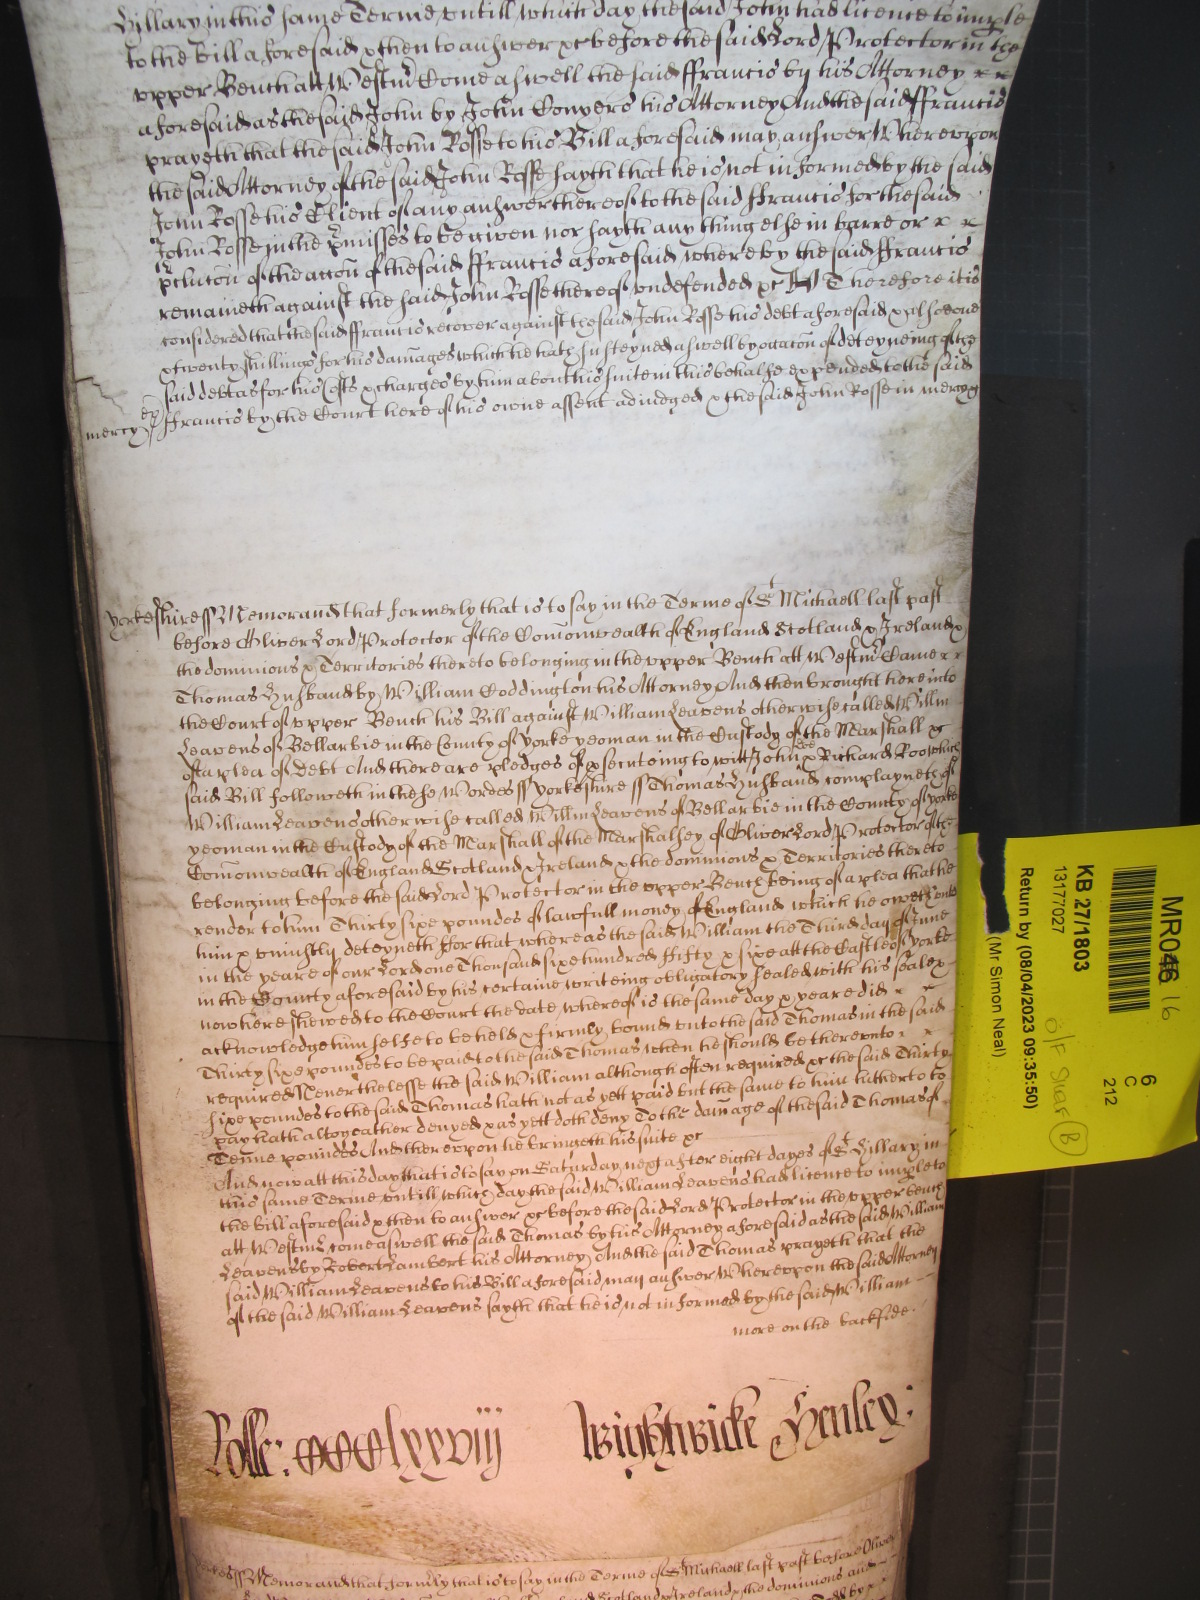 Hillary in this same Terme untill which day the said John had licence to imple
to the Bill aforesaid & then to answer &c before the said Lord Protector in the
upper Bench att Westmr Come aswell the said ffrancis by his Attorney
aforesaid as the said John by John Conyers his Attorney And the said ffrancis
prayeth that the said John Rosse to his Bill aforesaid may answer Whereupon
the said Attorney of the said John Rosse sayth that he is not informed by the said
John Rosse his Client of any answer thereof to the said ffrancis for the said
John Rosse in the pmisses to be given nor sayth any thing else in barre or
pclucon of the accon of the said ffrancis aforesaid whereby the said ffrancis
remaineth against the said John Rosse thereof undefended &c Therefore it is
considered that the said ffrancis recover against the said John Rosse his debt aforesaid & alsoe one
& twenty shillings for his damages which he hath susteyned aswell by occacon of deteyneing of the
said debt as for his Costs & charges by him about his suite in this behalfe expended to the said
mercy ffrancis by the Court here of his owne assent adiudged & the said John Rosse in mercy &c
Yorkeshire ss Memorand that formerly that is to say in the Terme of St Michaell last past
before Oliver Lord Protector of the Comonwealth of England Scotland & Ireland &
the dominions & Territories thereto belonging in the upper Bench att Westmr Came
Thomas Husband by William Coddington his Attorney And then brought here into
the Court of upper Bench his Bill against William Leavens otherwise called Willm
Leavens of Bellarbie in the County of Yorke yeoman in the Custody of the Marshall &c
of a plea of Debt And there are pledges of psecuting to witt John Doe & Richard Roo which
said Bill followeth in these Wordes ss Yorkeshire ss Thomas Husband complayneth of
William Leavens otherwise called Willm Leavens of Bellarbie in the County of Yorke
yeoman in the Custody of the Marshall of the Marshalsey of Oliver Lord Protector of the
Comonwealth of England Scotland & Ireland & the dominions & Territories thereto
belonging before the said Lord Protector in the upper Bench being of a plea that he
render to him Thirty sixe poundes of lawfull money of England which he oweth unto
him & uniustly deteyneth ffor that whereas the said William the Third day of June
in the yeare of our Lord one Thousand sixe hundred ffifty & sixe att the Castle of Yorke
in the County aforesaid by his certaine writeing obligatory sealed with his seale &
now here shewed to the Court the date whereof is the same day & yeare did
acknowledge him selfe to be held & firmly bound unto the said Thomas in the said
Thirty sixe poundes to be paid to the said Thomas when he should be thereunto
required Neverthelesse the said William although often required &c the said Thirty
sixe poundes to the said Thomas hath not as yett paid but the same to him hitherto to
pay hath altogeather denyed & as yett doth deny To the damage of the said Thomas of
Tenne poundes And thereupon he bringeth his suite &c
And now att this day that is to say on Saturday next after eight dayes of St Hillary in
this same Terme untill which day the said William Leavens had licence to imple to
the bill aforesaid & then to answer &c before the said Lord Protector in the upper bench
att Westmr come aswell the said Thomas by his Attorney aforesaid as the said William
Leavens by Robert Lambert his Attorney And the said Thomas prayeth that the
said William Leavens to his Bill aforesaid may answer Whereupon the said Attorney
of the said William Leavens sayth that he is not informed by the said William
more on the backside
Rosse: CCCClxxviij Wightwicke Henley:
Yorkes ss Memorand that formerly that is to say in the Terme of St Michaell last past before Oliver
Scotland & Ireland & the dominions and
MR046 16
KB 27/1803
1317702I
Return by (08/04/2023 09:35:50)
(Mr Simon Neal)
6
C
212
B